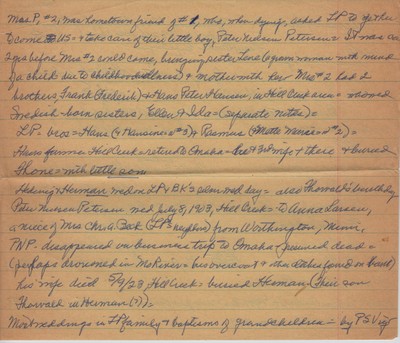 Mrs. P, #2, was hometown friend of #1, Mrs, when dying, asked LP to get her
to come US = & take care of their little boy, Peter Nielsen Petersen = It was ca
2 yrs before Mrs #2 could come, bringing sister Lena (a grown woman with mind
of a child due to childhood illness) & mother with her Mrs #2 had 2
brothers, Frank (Frederik) & Hans Peter Hansen, in Hill Creek area =
Swedish-born sisters, Ellen & Ida = (separate notes) =
LP: bros = Hans (& Hansine = #3) & Rasmus (Mate Marie = #2) =
Hans farms Hill Creek & retired to Omaha = & 3rd wife & there & buried
Phone = with little son
Adsing-Herman wed on LP & BK's silver wed day = also Thorvald's birthday
Peter Nielsen Petersen wed July 8, 1903, Hill Creek = to Anna Larsen,
a niece of Mrs Chr. G. Bak (LP's nephew) from Worthington, Minn,
PNP disappeared on business trip to Omaha & presumed dead =
(perhaps drowned in Mo River = his overcoat & other clothes found on bank)
his wife died 5/9/23, Hill Creek = buried Herman (their son
Thorvald in Herman (?)) =
Most weddings in LP family & baptisms of grandchildren = by PS Vig